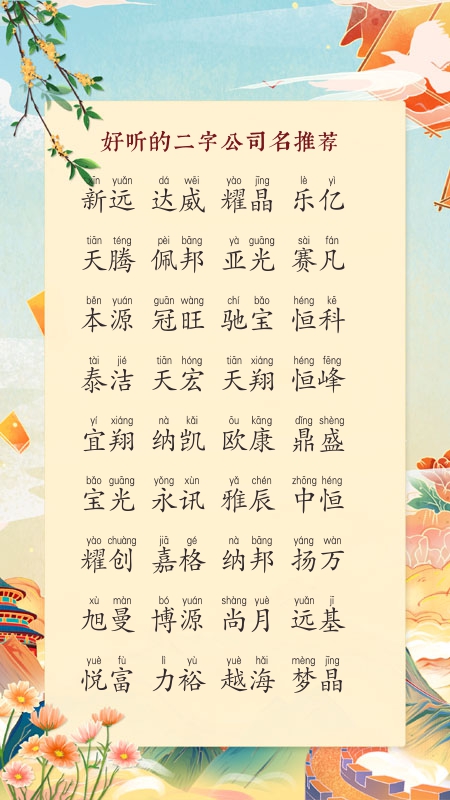 好听的二字公司名推荐
xīn yuǎn dá wēi yào jīng lè yì
新远 达威 耀晶 乐亿
tiān téng pèi bāng yà guāng sài fán
天腾 佩邦 亚光 赛凡
běn yuán guān wàng chí bǎo héng kē
本源 冠旺 驰宝 恒科
tài jié tiān hóng tiān xiáng héng fēng
泰洁 天宏 天翔 恒峰
yí xiáng nà kǎi ōu kāng dǐng shèng
宜翔 纳凯 欧康 鼎盛
bǎo guāng yǒng xùn yǎ chén zhōng héng
宝光 永讯 雅辰 中恒
yào chuàng jiā gé nà bāng yáng wàn
耀创 嘉格 纳邦 扬万
xù màn bó yuán shàng yuè yuǎn jī
旭曼 博源 尚月 远基
yuè fù lì yù yuè hǎi mèng jīng
悦富 力裕 越海 梦晶